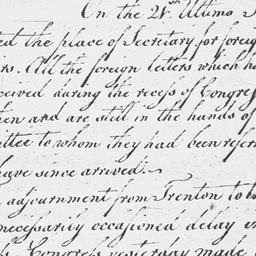 On the 21st Ultimo
ed the place of Secretary for foreig
rs. All the foreign letters which ha
ceived during the recess of Congre
hen and are still in the hands of
ittee to whom they had been refer
have since arrived.
adjournment from Trenton to th
necessarily occasioned delay in
Congress yesterday made